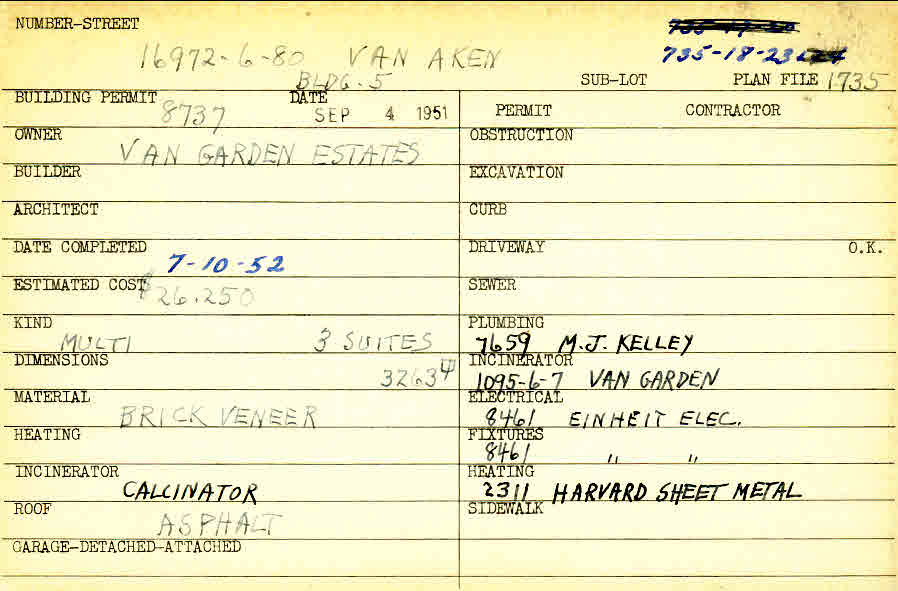 NUMBER-STREET
735-18-23
16972-6-80 VAN AKEN
BLDG. 5
SUB-LOT PLAN FILE 1735
BUILDING PERMIT 8737 DATE SEP 4 1951
PERMIT CONTRACTOR
OWNER VAN GARDEN ESTATES
OBSTRUCTION
BUILDER
EXCAVATION
ARCHITECT
CURB
DATE COMPLETED 7-10-52
DRIVEWAY O.K.
ESTIMATED COST $26,250
SEWER
KIND MULTI 3 SUITES
PLUMBING 7659 M.J. KELLEY
DIMENSIONS
INCINERATOR 1095-6-7 VAN GARDEN
MATERIAL BRICK VENEER
ELECTRICAL 8461 EINHEIT ELEC.
HEATING
FIXTURES 8461 " "
INCINERATOR CALCINATOR
HEATING 2311 HARVARD SHEET METAL
ROOF ASPHALT
SIDEWALK
GARAGE-DETACHED-ATTACHED